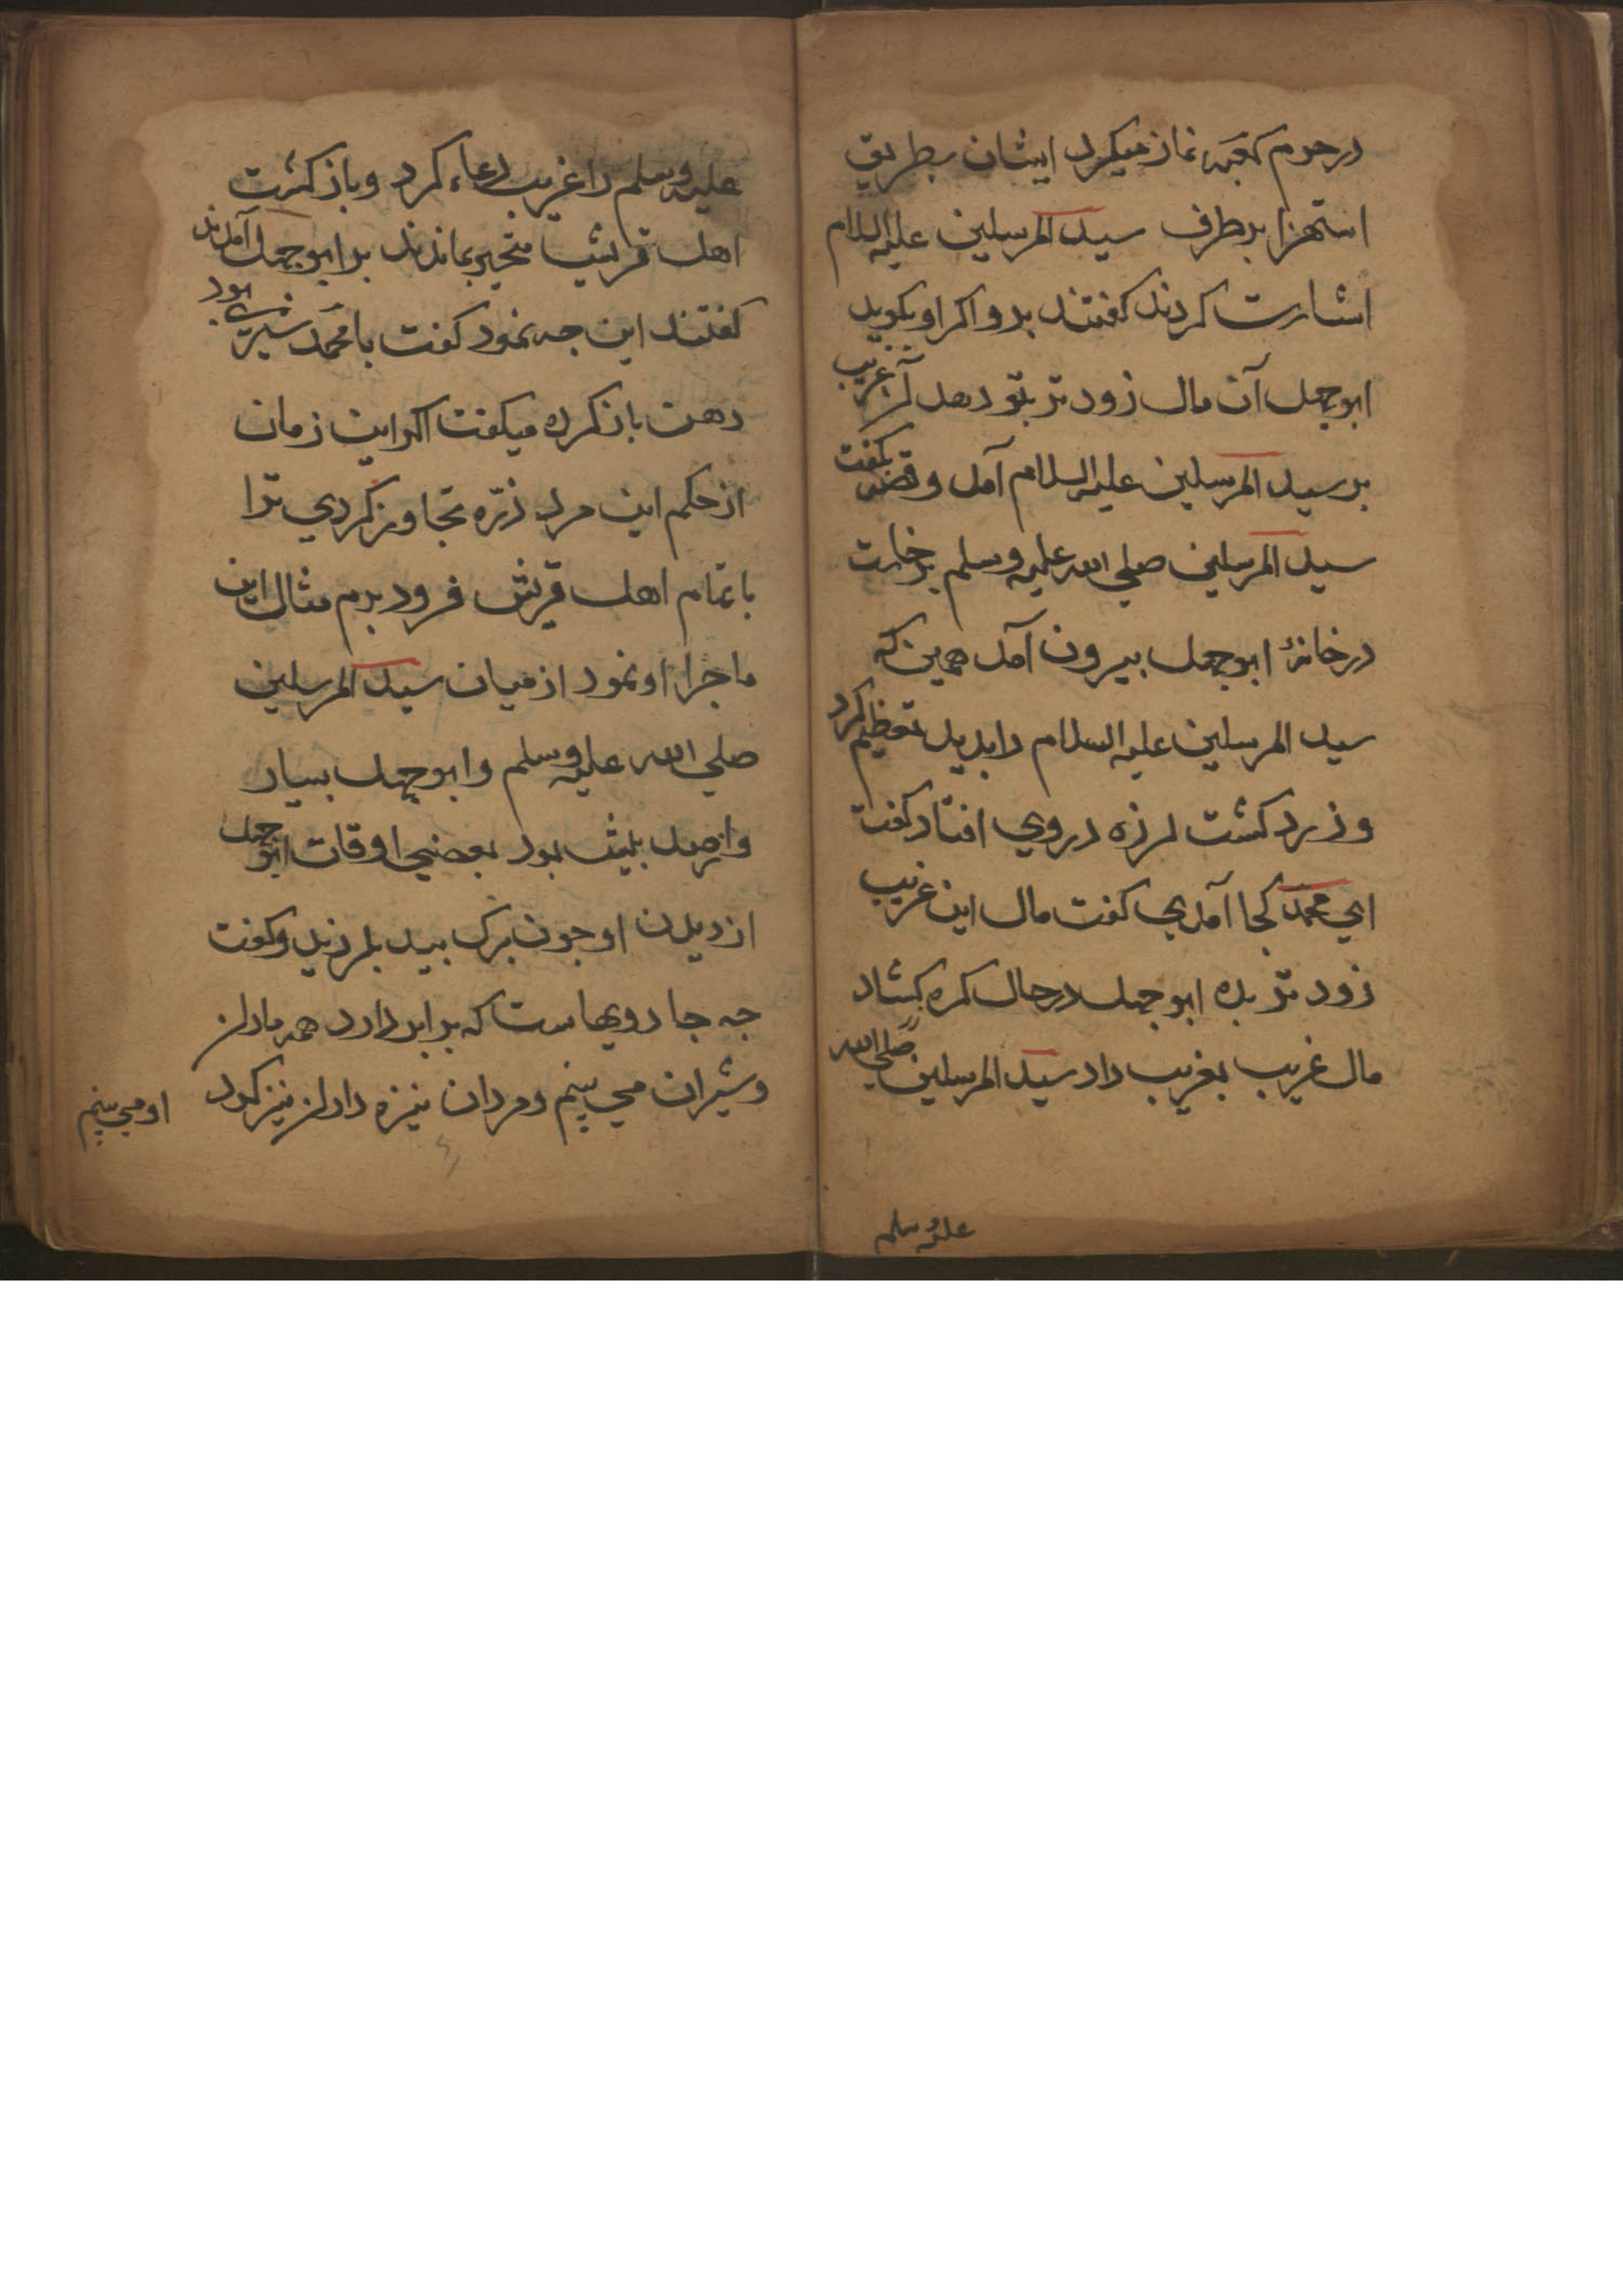 در حرم کعبه نماز میکرد ایشان بطریق
استهزا بر طرف سید المرسلین علیه السلام
اشارت کردند کفتند برو اکر او بکوید
ابوجهل آن مال زود تر بتو دهد آن غریب
بر سید المرسلین علیه السلام آمد و قصه بکفت
سید المرسلین صلی الله علیه وسلم برخاست
در خانهٔ ابوجهل بیرون آمد همین که
سید المرسلین علیه السلام را بدید تعظیم کرد
و زرد کشت لرزه در روی افتاد کفت
ای محمد کجا آمدی کفت مال این غریب
زود تر بده ابوجهل در حال کره کشاد
مال غریب بغریب داد سید المرسلین صلی الله
علیه وسلم
علیه وسلم را غریب دعاء کرد و باز کشت
اهل قریش متحیر بماندند بر ابوجهل آمدند
کفتند این چه نمود کفت با محمد شیری بود
دهن باز کرده میکفت اکر این زمان
از حکم این مرد ذرّه تجاوز کردی ترا
با تمام اهل قریش فرو برم مثال این
ماجرا او نمود از میان سید المرسلین
صلی الله علیه وسلم و ابوجهل بسیار
بود بعضی اوقات ابوجهل
از دیدن او چون برک بید بلرزید و کفت
چه جادویهاست که برابر دارد همه ماران
و شیران می بینم و مردان نیزه داران نیز کرد
او می بینم